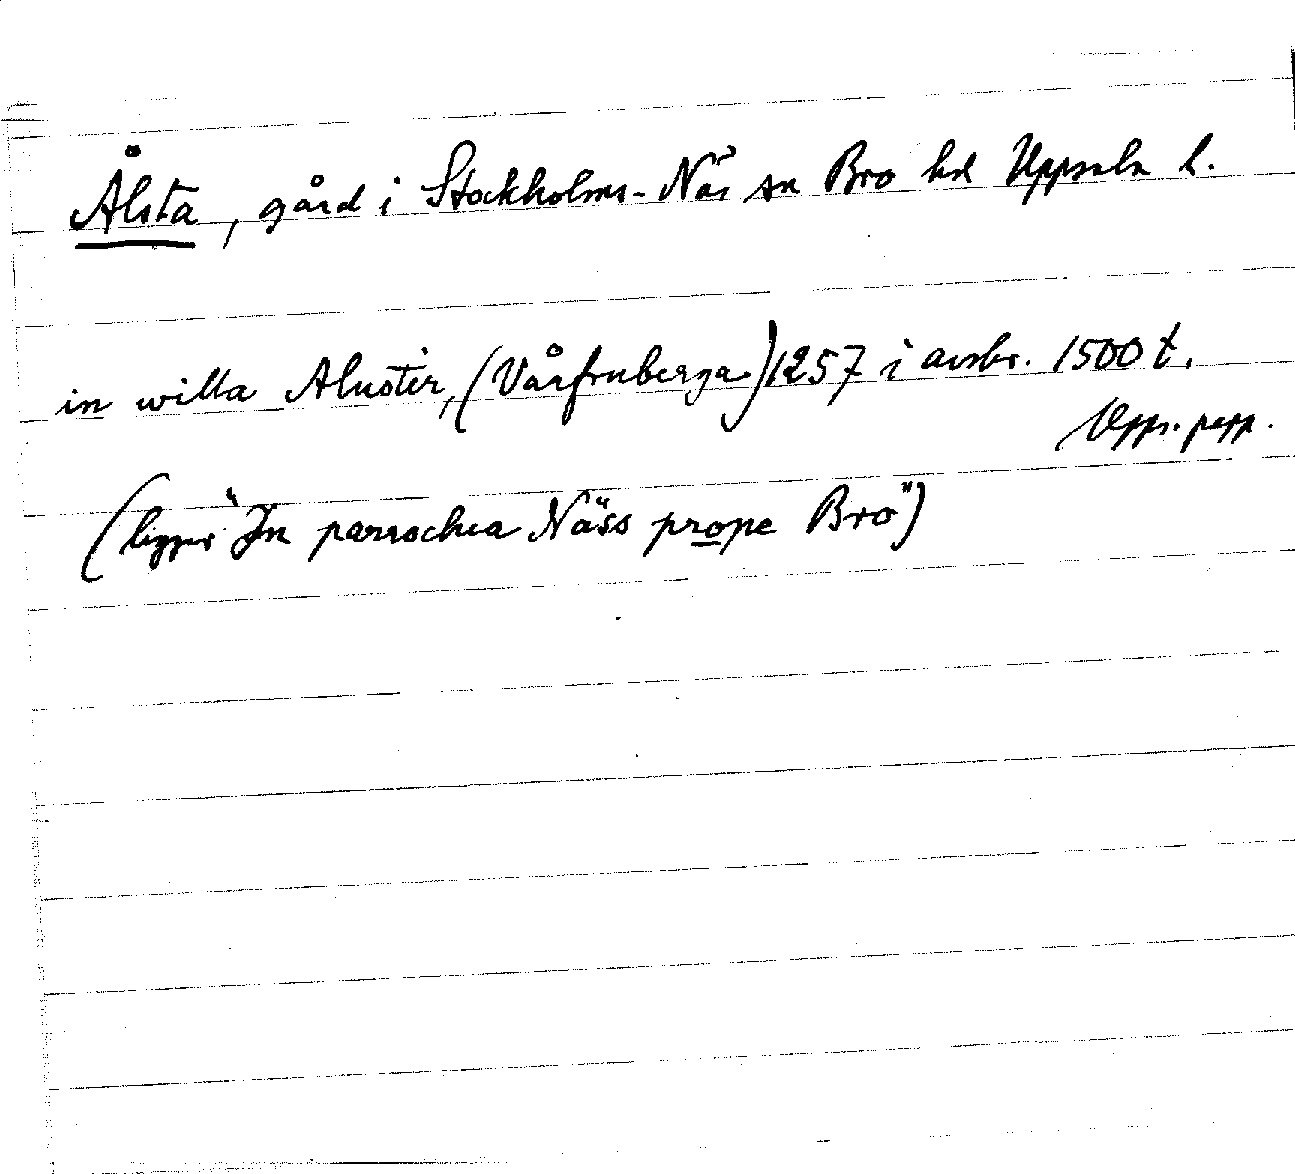 Ålsta, gård i Stockholms-Näs sn Bro hd Uppsala l.
in willa Alustir, (Vårfruberga) 1257 i avskr. 1500 t.
Upps. papp.
(ligger "In parrochia Näss prope Bro")